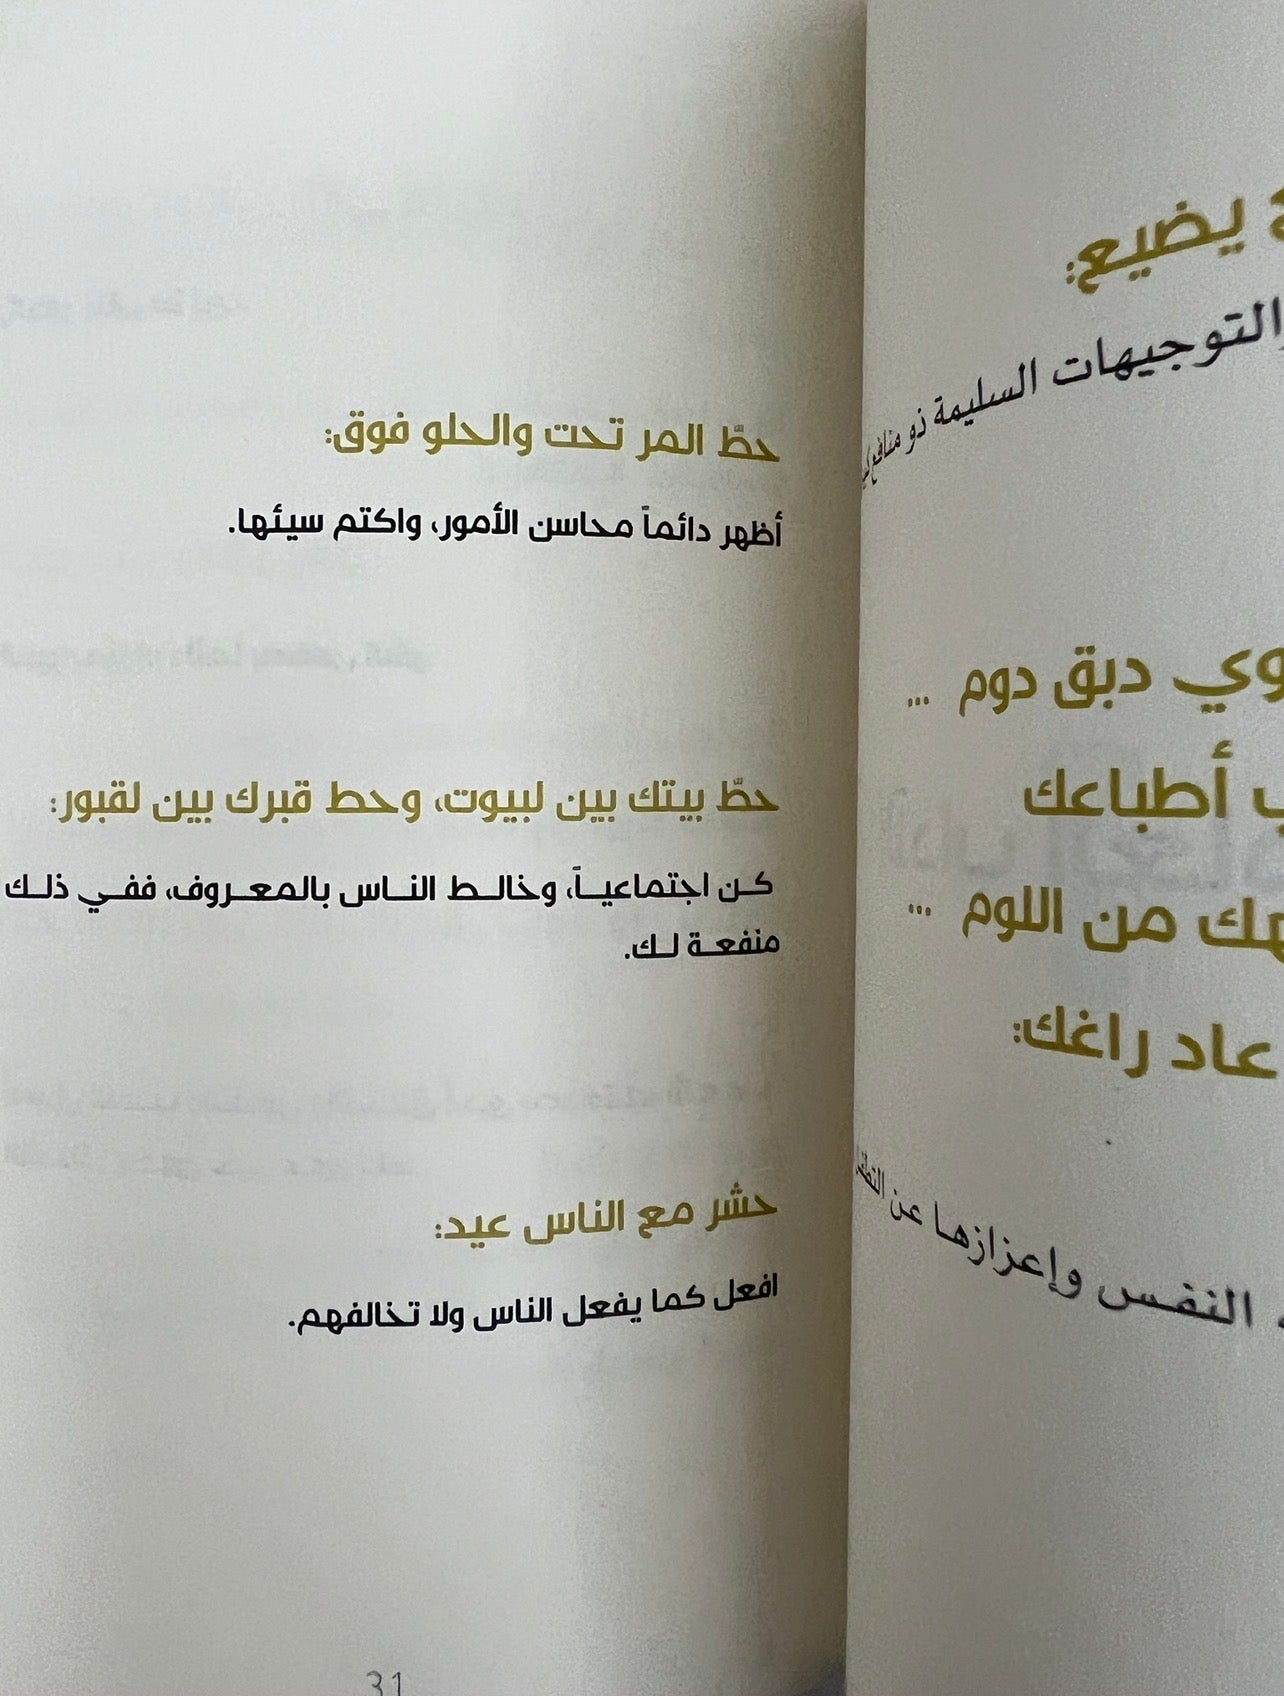 يضيع:
والتوجيهات السليمة ذو منافع
دبق دوم ...
أطباعك
من اللوم ...
عاد راغك:
النفس وإعزازها عن
حطّ المر تحت والحلو فوق:
أظهر دائماً محاسن الأمور، واكتم سيئها.
حطّ بيتك بين لبيوت، وحط قبرك بين لقبور:
كن اجتماعياً، وخالط الناس بالمعروف، ففي ذلك
منفعة لك.
حشر مع الناس عيد:
افعل كما يفعل الناس ولا تخالفهم.
31